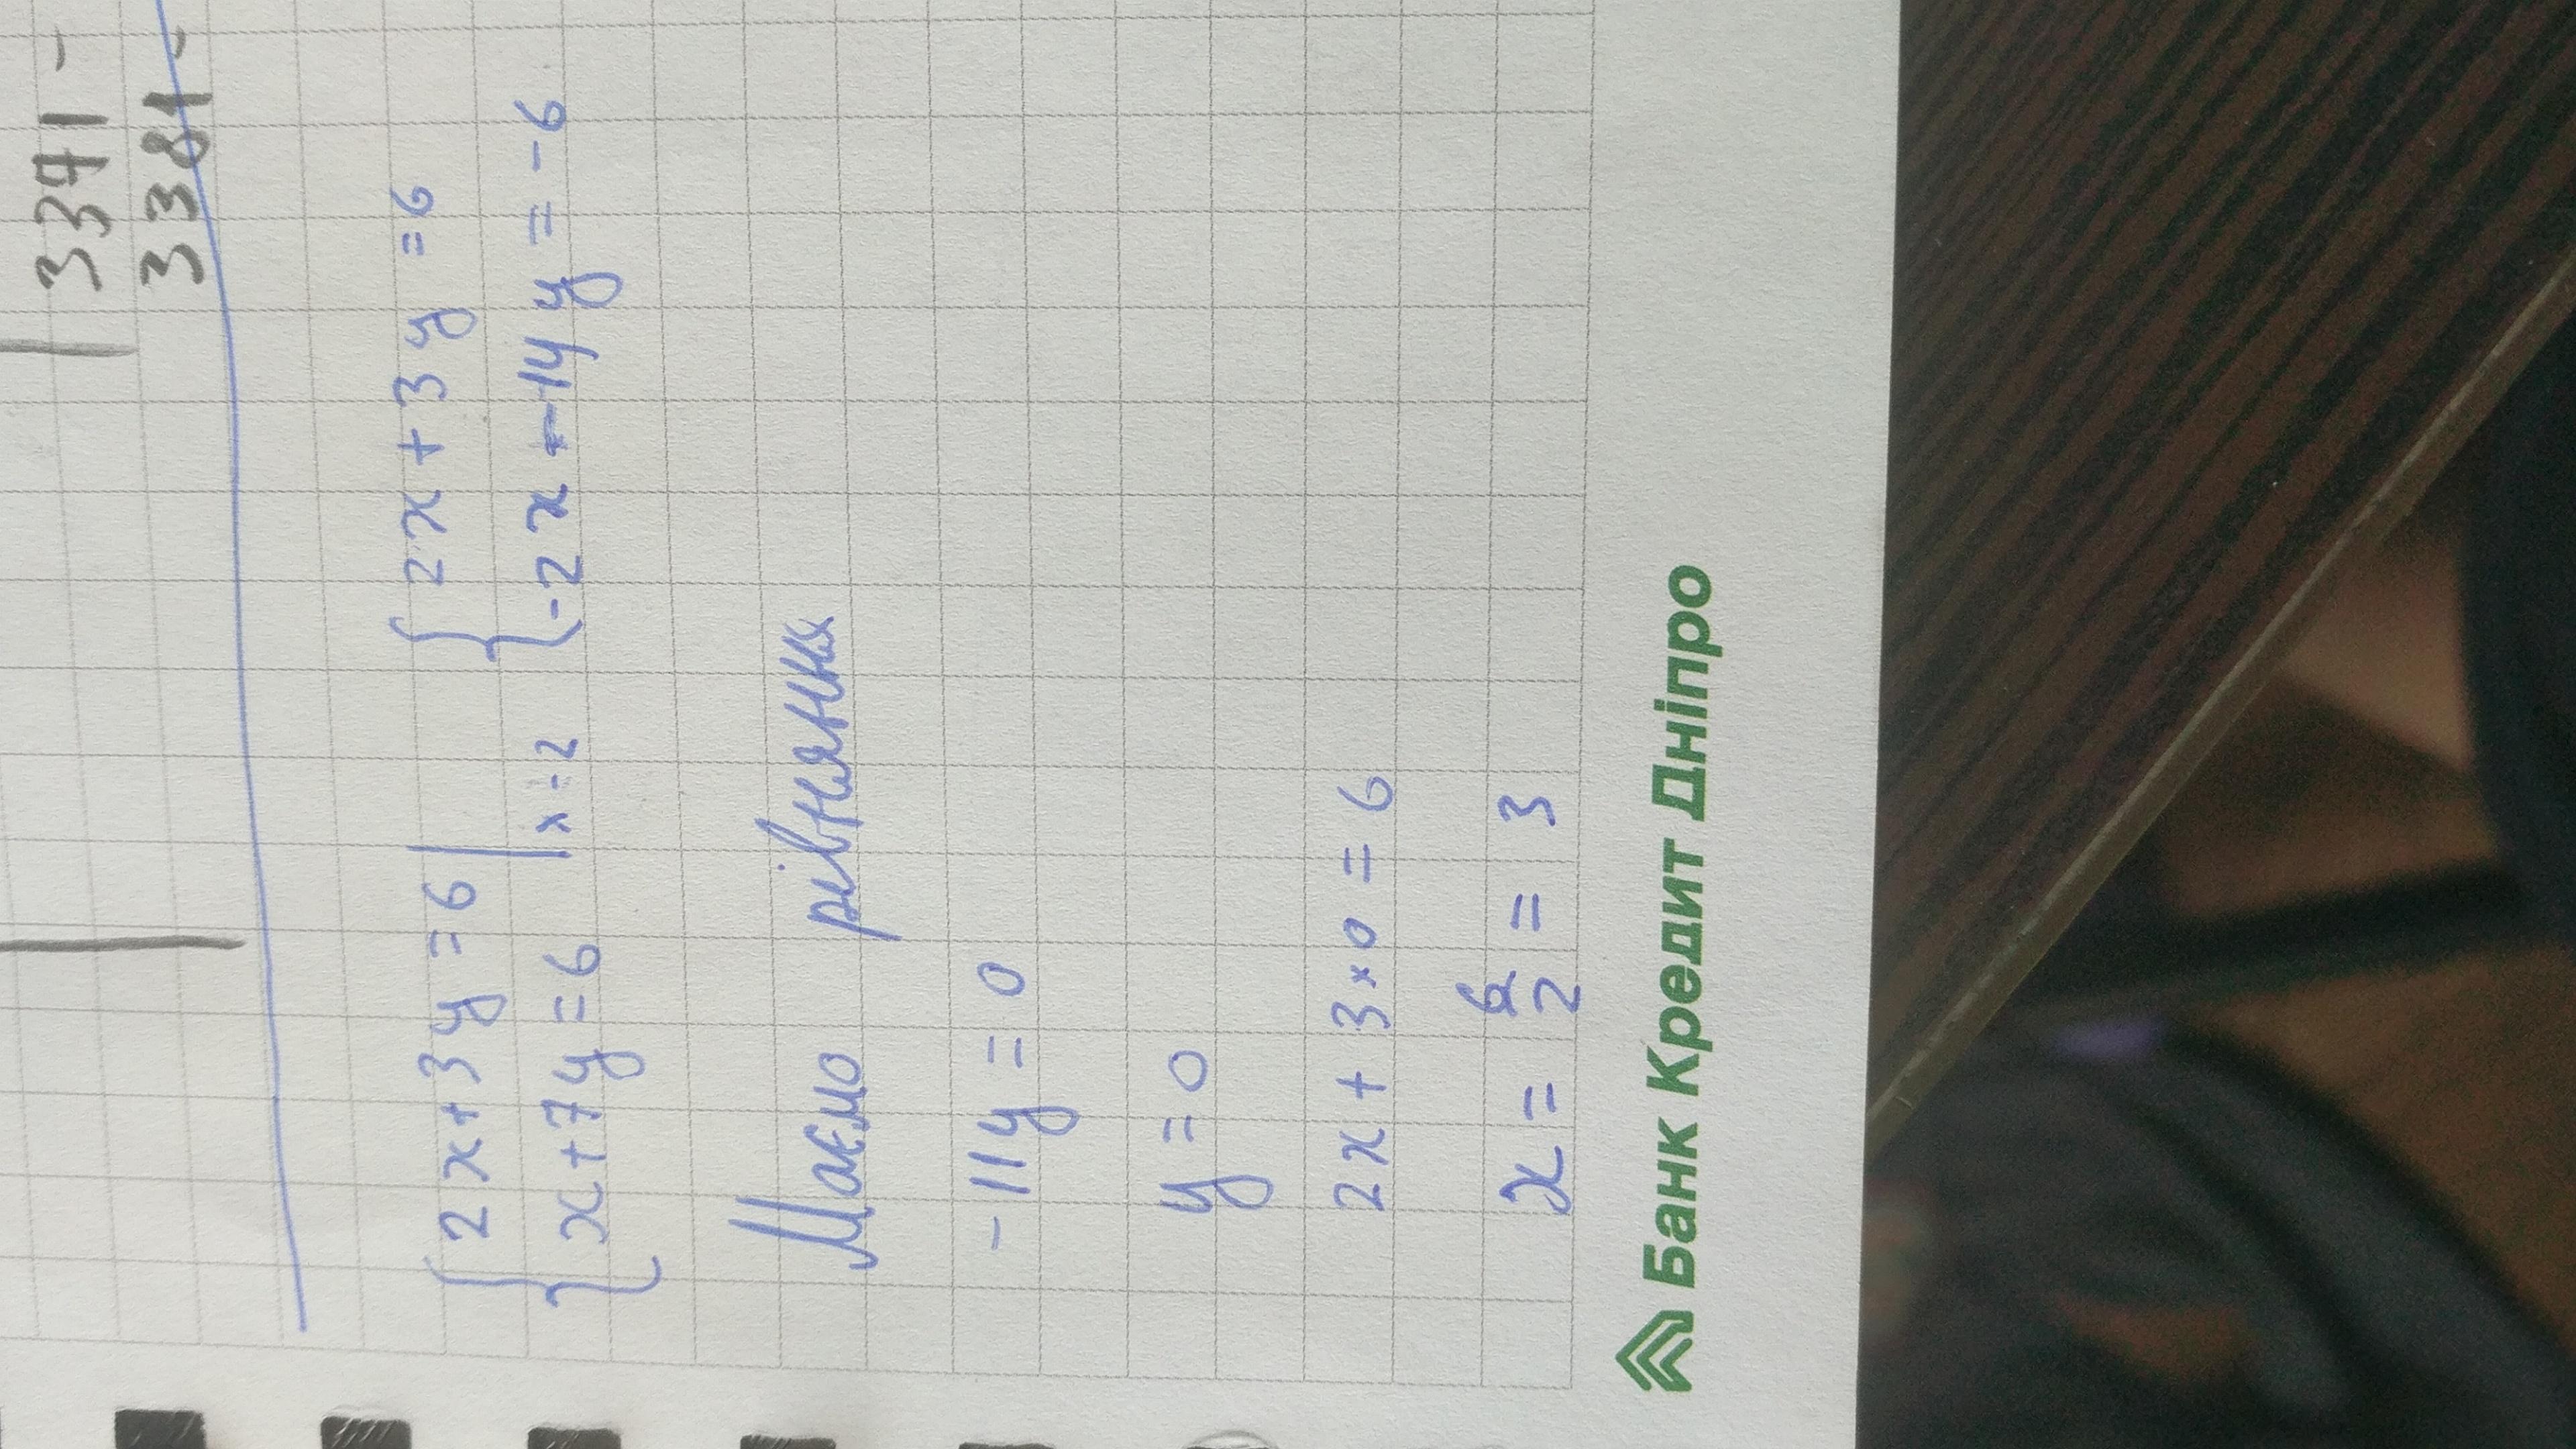 3371 -
3381 -
{ 2x + 3y = 6 | { 2x + 3y = 6
{ x + 7y = 6 | x - 2 { -2x - 14y = -6
Маємо рівняння
- 11y = 0
y = 0
2x + 3 × 0 = 6
x = 6/2 = 3
Банк Кредит Дніпро